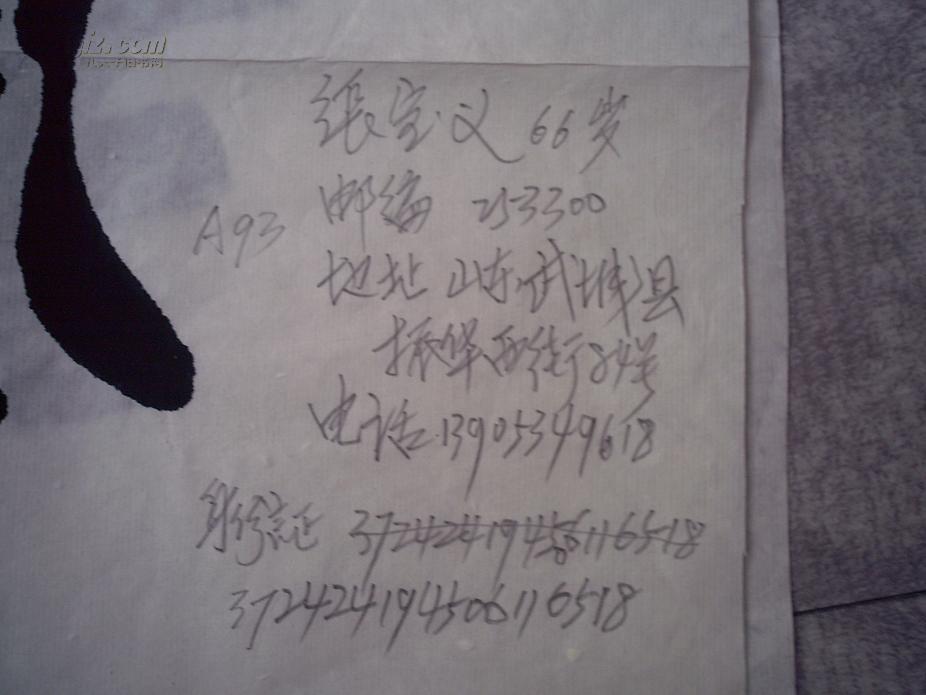 张宝义 66岁
A93 邮编 253300
地址 山东武城县
振华西街84号
电话 13905349618
身份证
372424194506116518